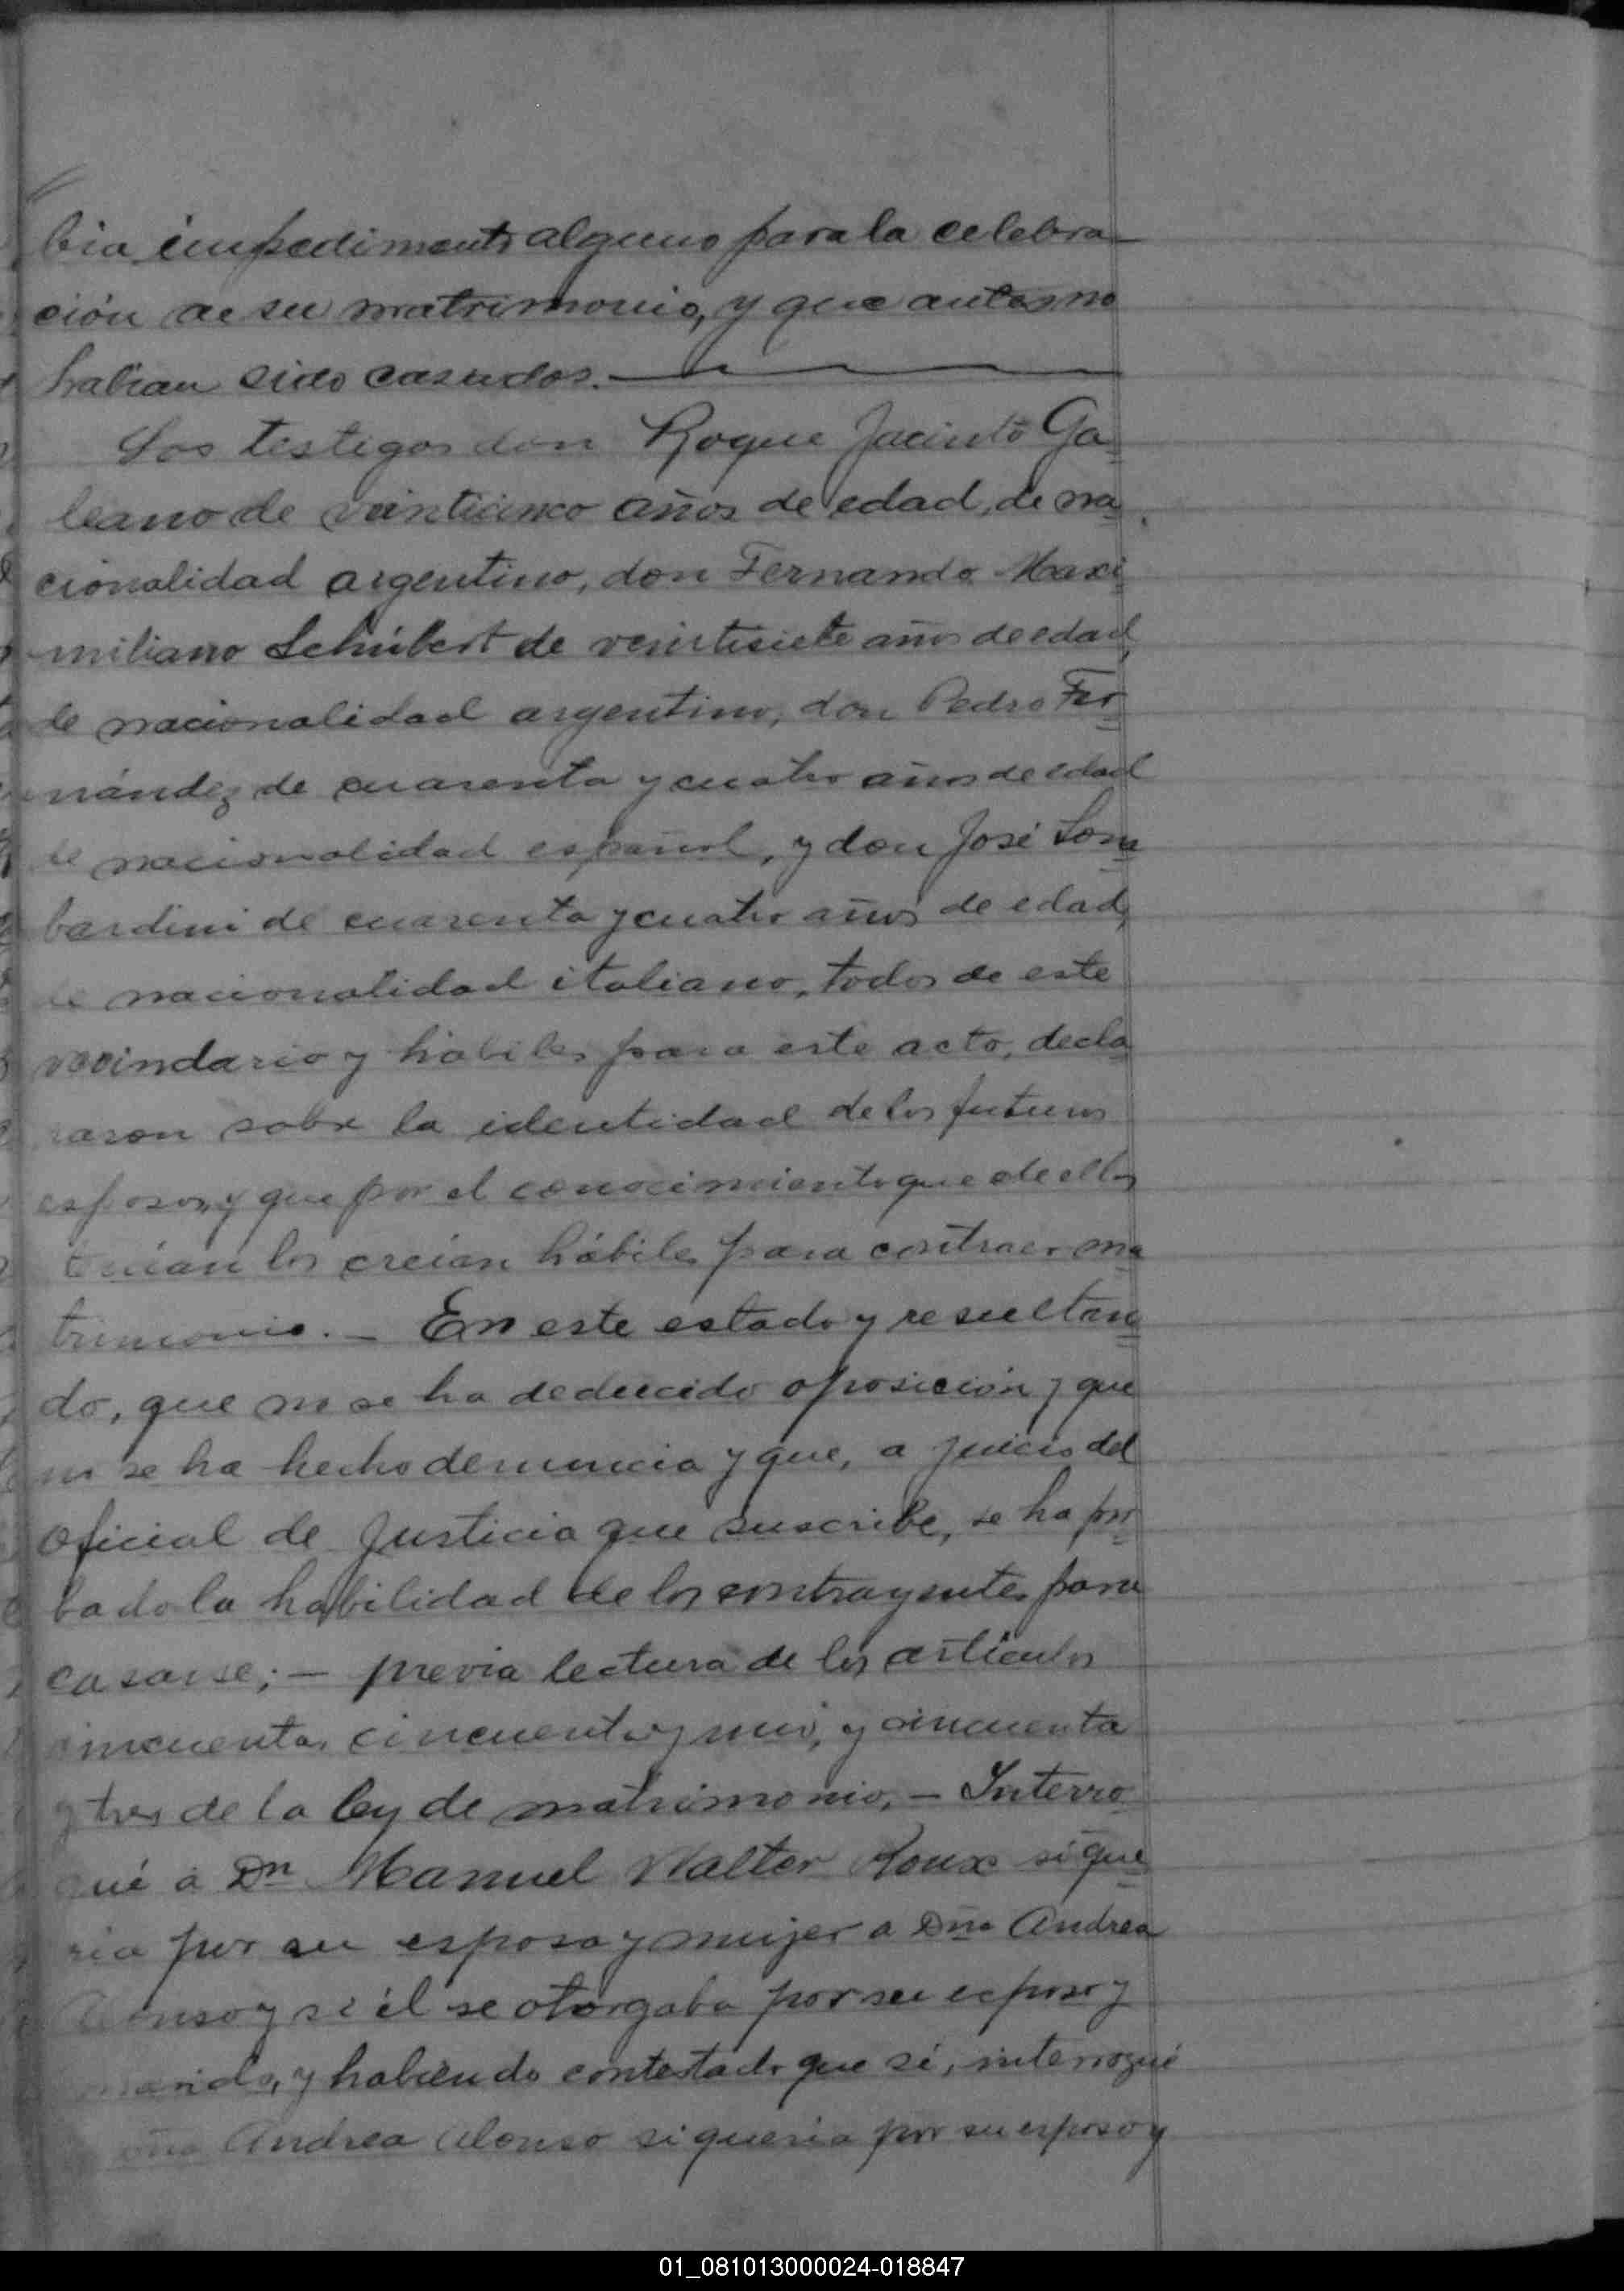 bia impedimento alguno para la celebra
ción de su matrimonio, y que antes no
habian sido casados.
Los testigos don Roque Jacinto Ga
leano de veinticinco años de edad, de na
cionalidad argentino, don Fernando Maxi
miliano Schúbert de veintisiete años de edad,
de nacionalidad argentino, don Pedro Fer
nández de cuarenta y cuatro años de edad
de nacionalidad español, y don José Lom
bardini de cuarenta y cuatro años de edad,
de nacionalidad italiano, todos de este
vecindario y hábiles para este acto, decla
raron sobre la identidad de los futuros
esposos, y que por el conocimiento que de ellos
tenían los creían hábiles para contraer ma
trimonio. — En este estado y resultan
do, que no se ha deducido oposición y que
no se ha hecho denuncia y que, a juicio del
oficial de Justicia que suscribe, se ha pro
bado la habilidad de los contrayentes para
casarse; — previa lectura de los artículos
cincuenta, cincuenta y uno, y cincuenta
y tres de la ley de matrimonio, — Interro
gué a Dn Manuel Walter Roux si que
ria por su esposa y mujer a Dña Andrea
Alonso y si él se otorgaba por su esposo y
marido, y habiendo contestado que sí, interrogué
Andrea Alonso si queria por su esposo y
01_081013000024-018847